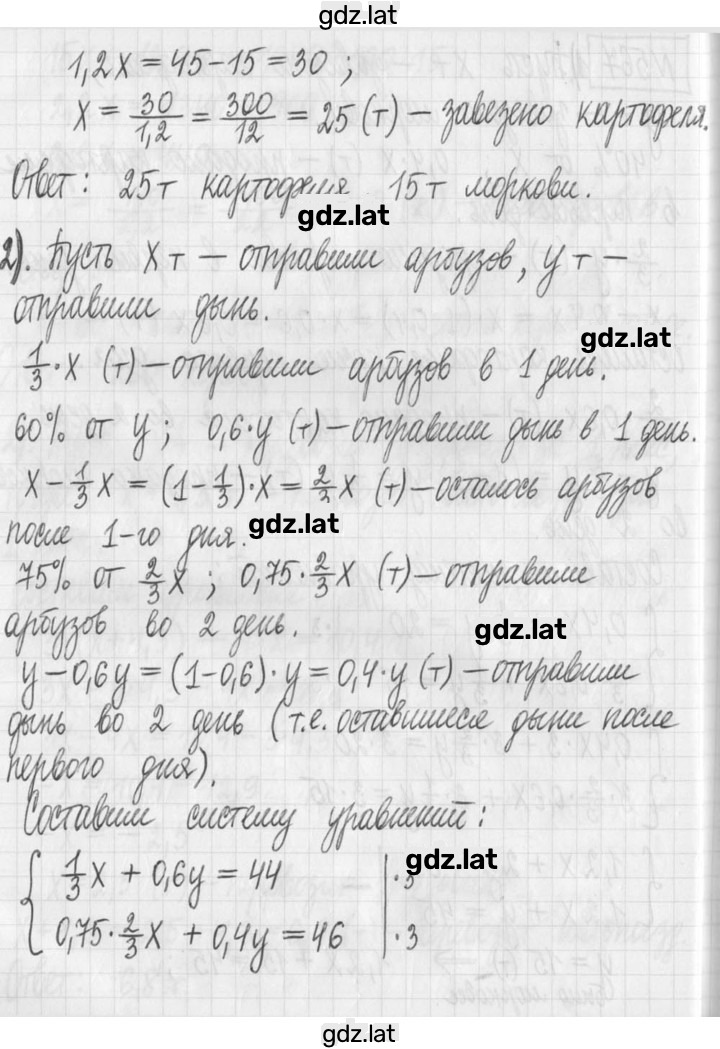 gdz.lat
1,2x = 45 - 15 = 30 ;
x = 30/1,2 = 300/12 = 25 (т) - завезено картофеля.
Ответ: 25т картофеля 15т моркови.
gdz.lat
2). Пусть x т - отправили арбузов, y т -
отправили дынь.
gdz.lat
1/3 · x (т) - отправили арбузов в 1 день.
60% от y ; 0,6·y (т) - отправили дынь в 1 день.
x - 1/3x = (1 - 1/3)·x = 2/3x (т) - осталось арбузов
после 1-го дня.
gdz.lat
75% от 2/3x ; 0,75·2/3x (т) - отправили
арбузов во 2 день.
gdz.lat
y - 0,6y = (1-0,6)·y = 0,4·y (т) - отправили
дынь во 2 день (т.е. оставшиеся дыни после
первого дня).
Составим систему уравнений:
gdz.lat
{ 1/3x + 0,6y = 44 | ·3
0,75·2/3x + 0,4y = 46 | ·3
gdz.lat